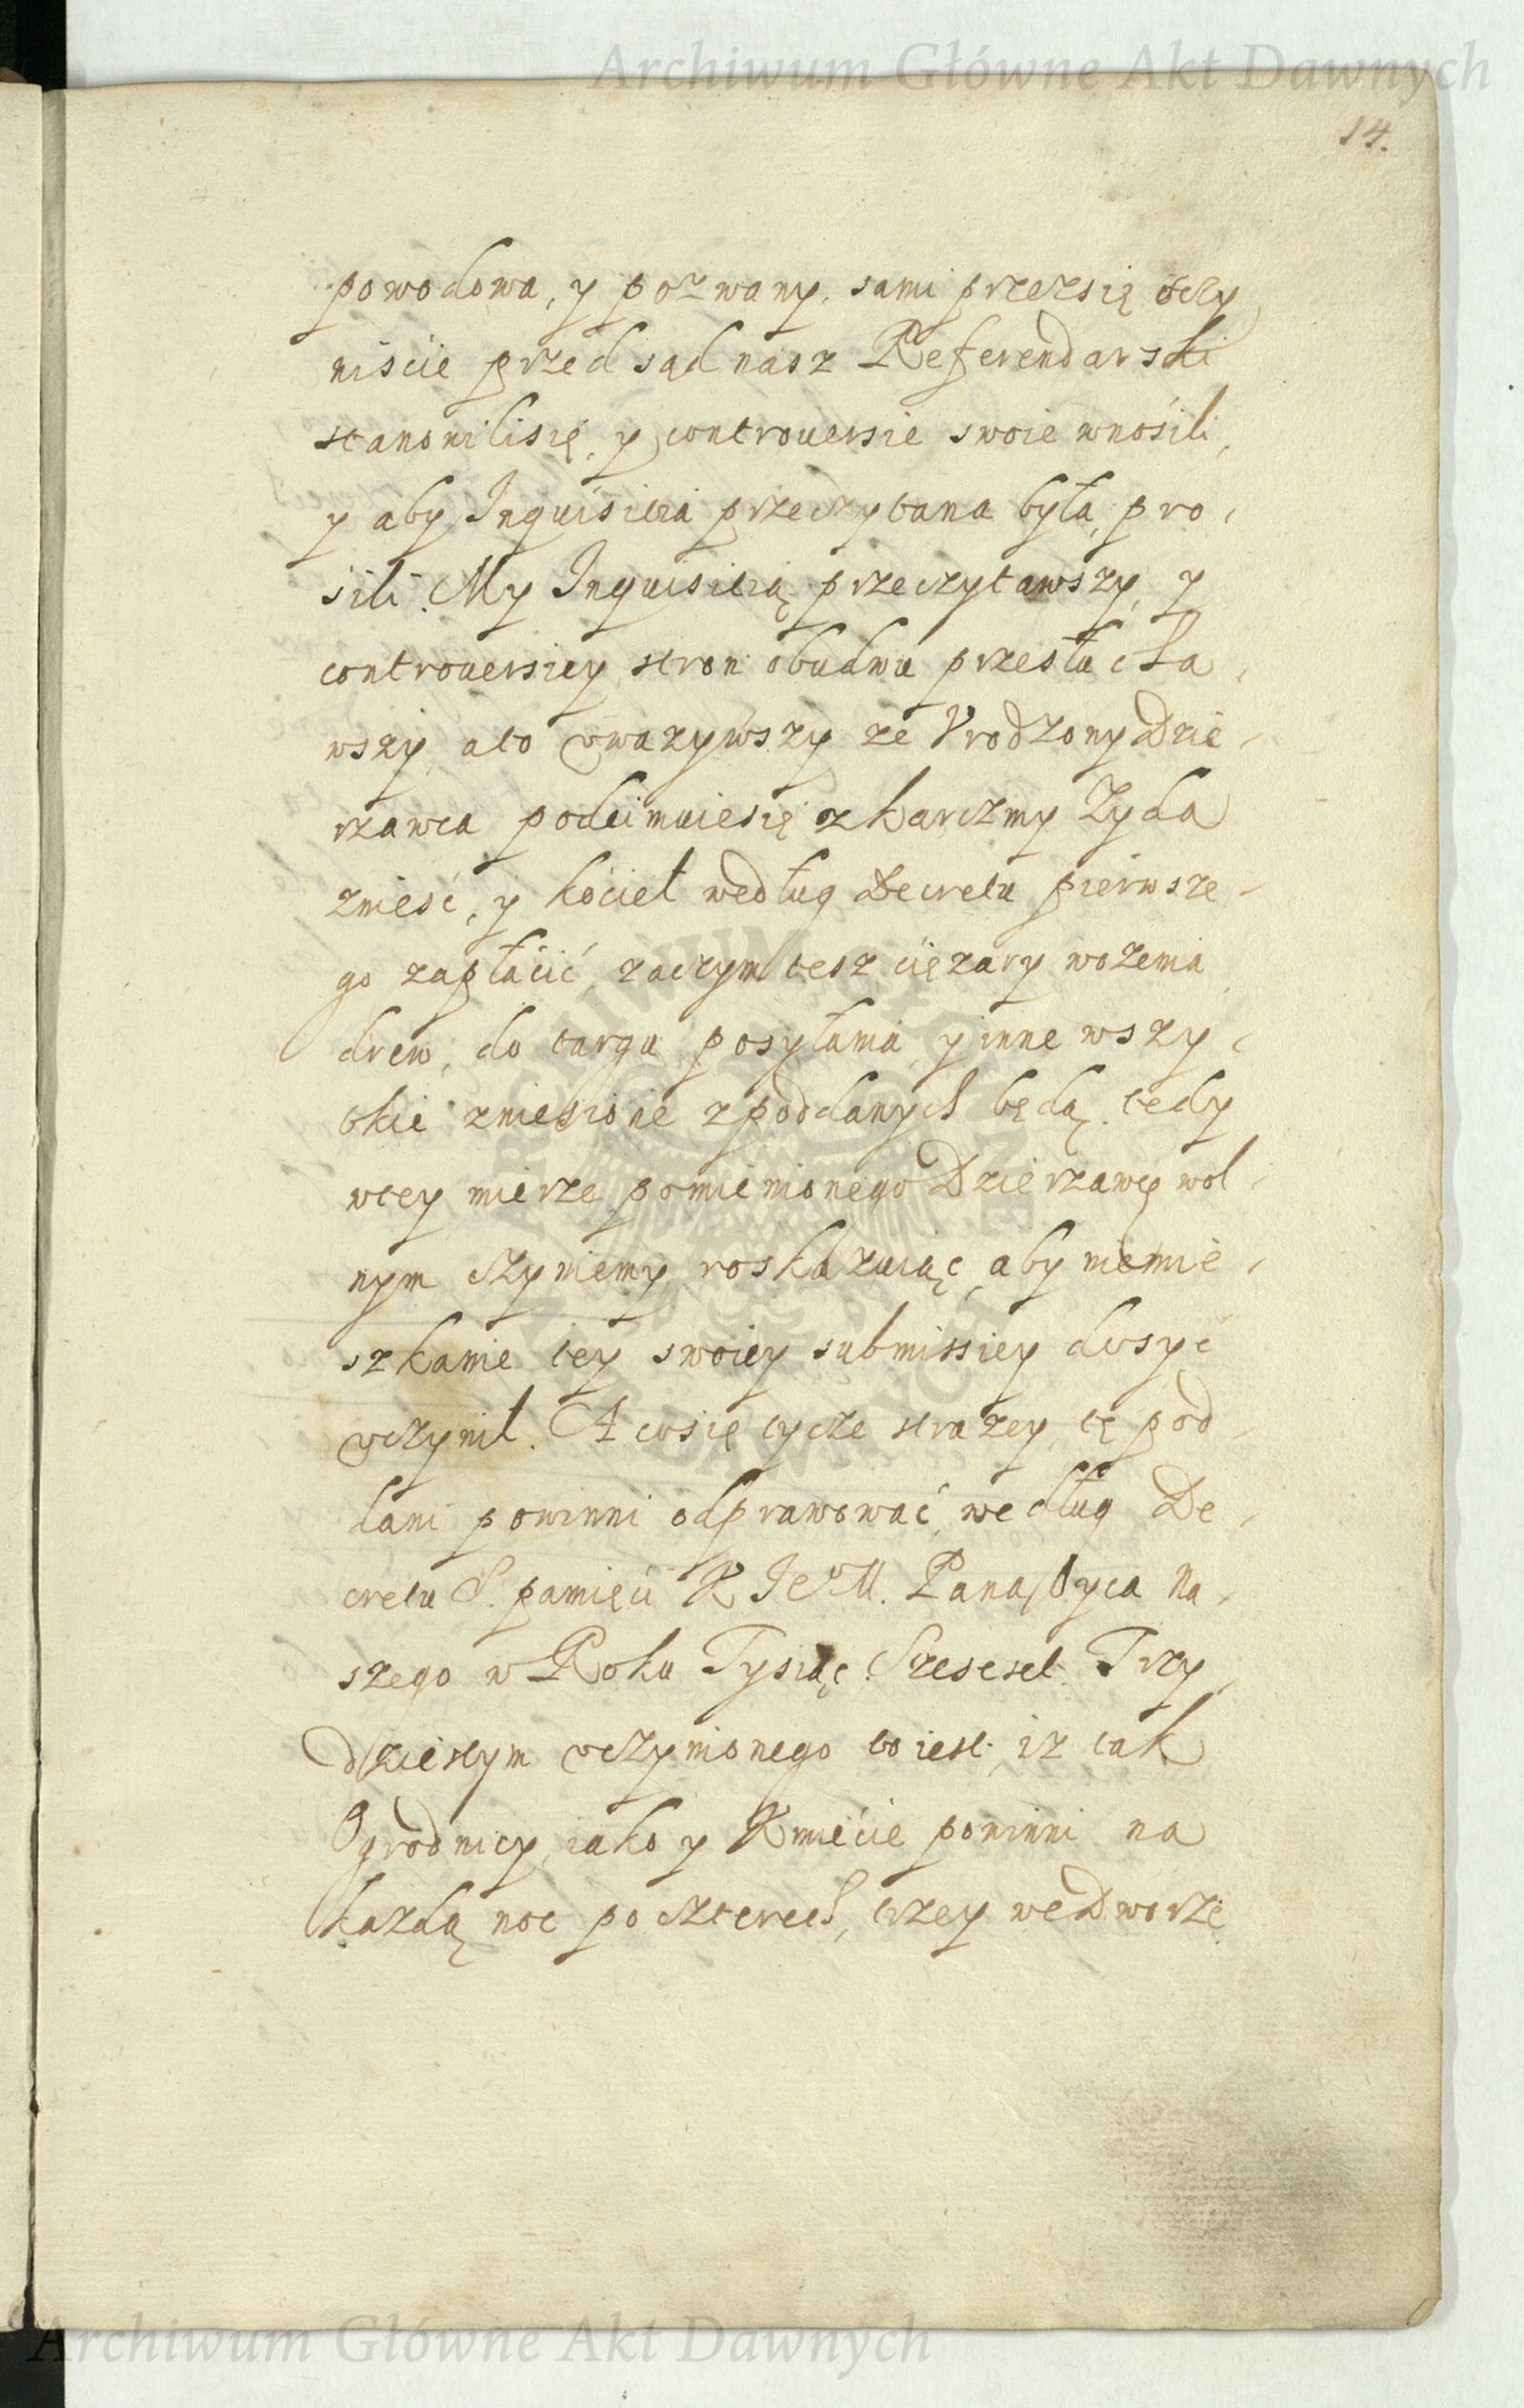 Archiwum Główne Akt Dawnych
14.
powodowa, y pozwany. sami przezsię oczy
niscie przed sąd nasz Referendarski
stanowilisię, y controuersie swoie wnosili,
y aby Inquisicia przeczytana była, pro,
sili. My Inquisicią przeczytawszy, y
controuersiey stron obudwu przesłucha,
wszy, ato vwazywszy ze Vrodzony Dzie,
rzawca podeimuiesię z karczmy Zyda
zniesć, y kocieł według Decretu pierwsze,
go zapłacić, zaczym tesz cięzary wozenia
drew, do targu posyłania, y inne wszy,
tkie zniesione z poddanych będą. tedy
wtey mierze pomienionego Dzierzawcę wol,
nym czyniemy, roskazuiąc, aby niemie,
szkanie tey swoiey submissiey dosyć
vczynił. A cosię tycze strazey, tę pod,
dani powinni odprawować, według De,
cretu S. pamięci K JeoM. Pana Oyca Na,
szego w Roku Tysiąc Szescset Trzy,
dziestym vczynionego to iest, iz tak
Ogrodnicy, iako y Kmiecie powinni na
kazdą noc po czterech, trzey we Dworze
Archiwum Główne Akt Dawnych